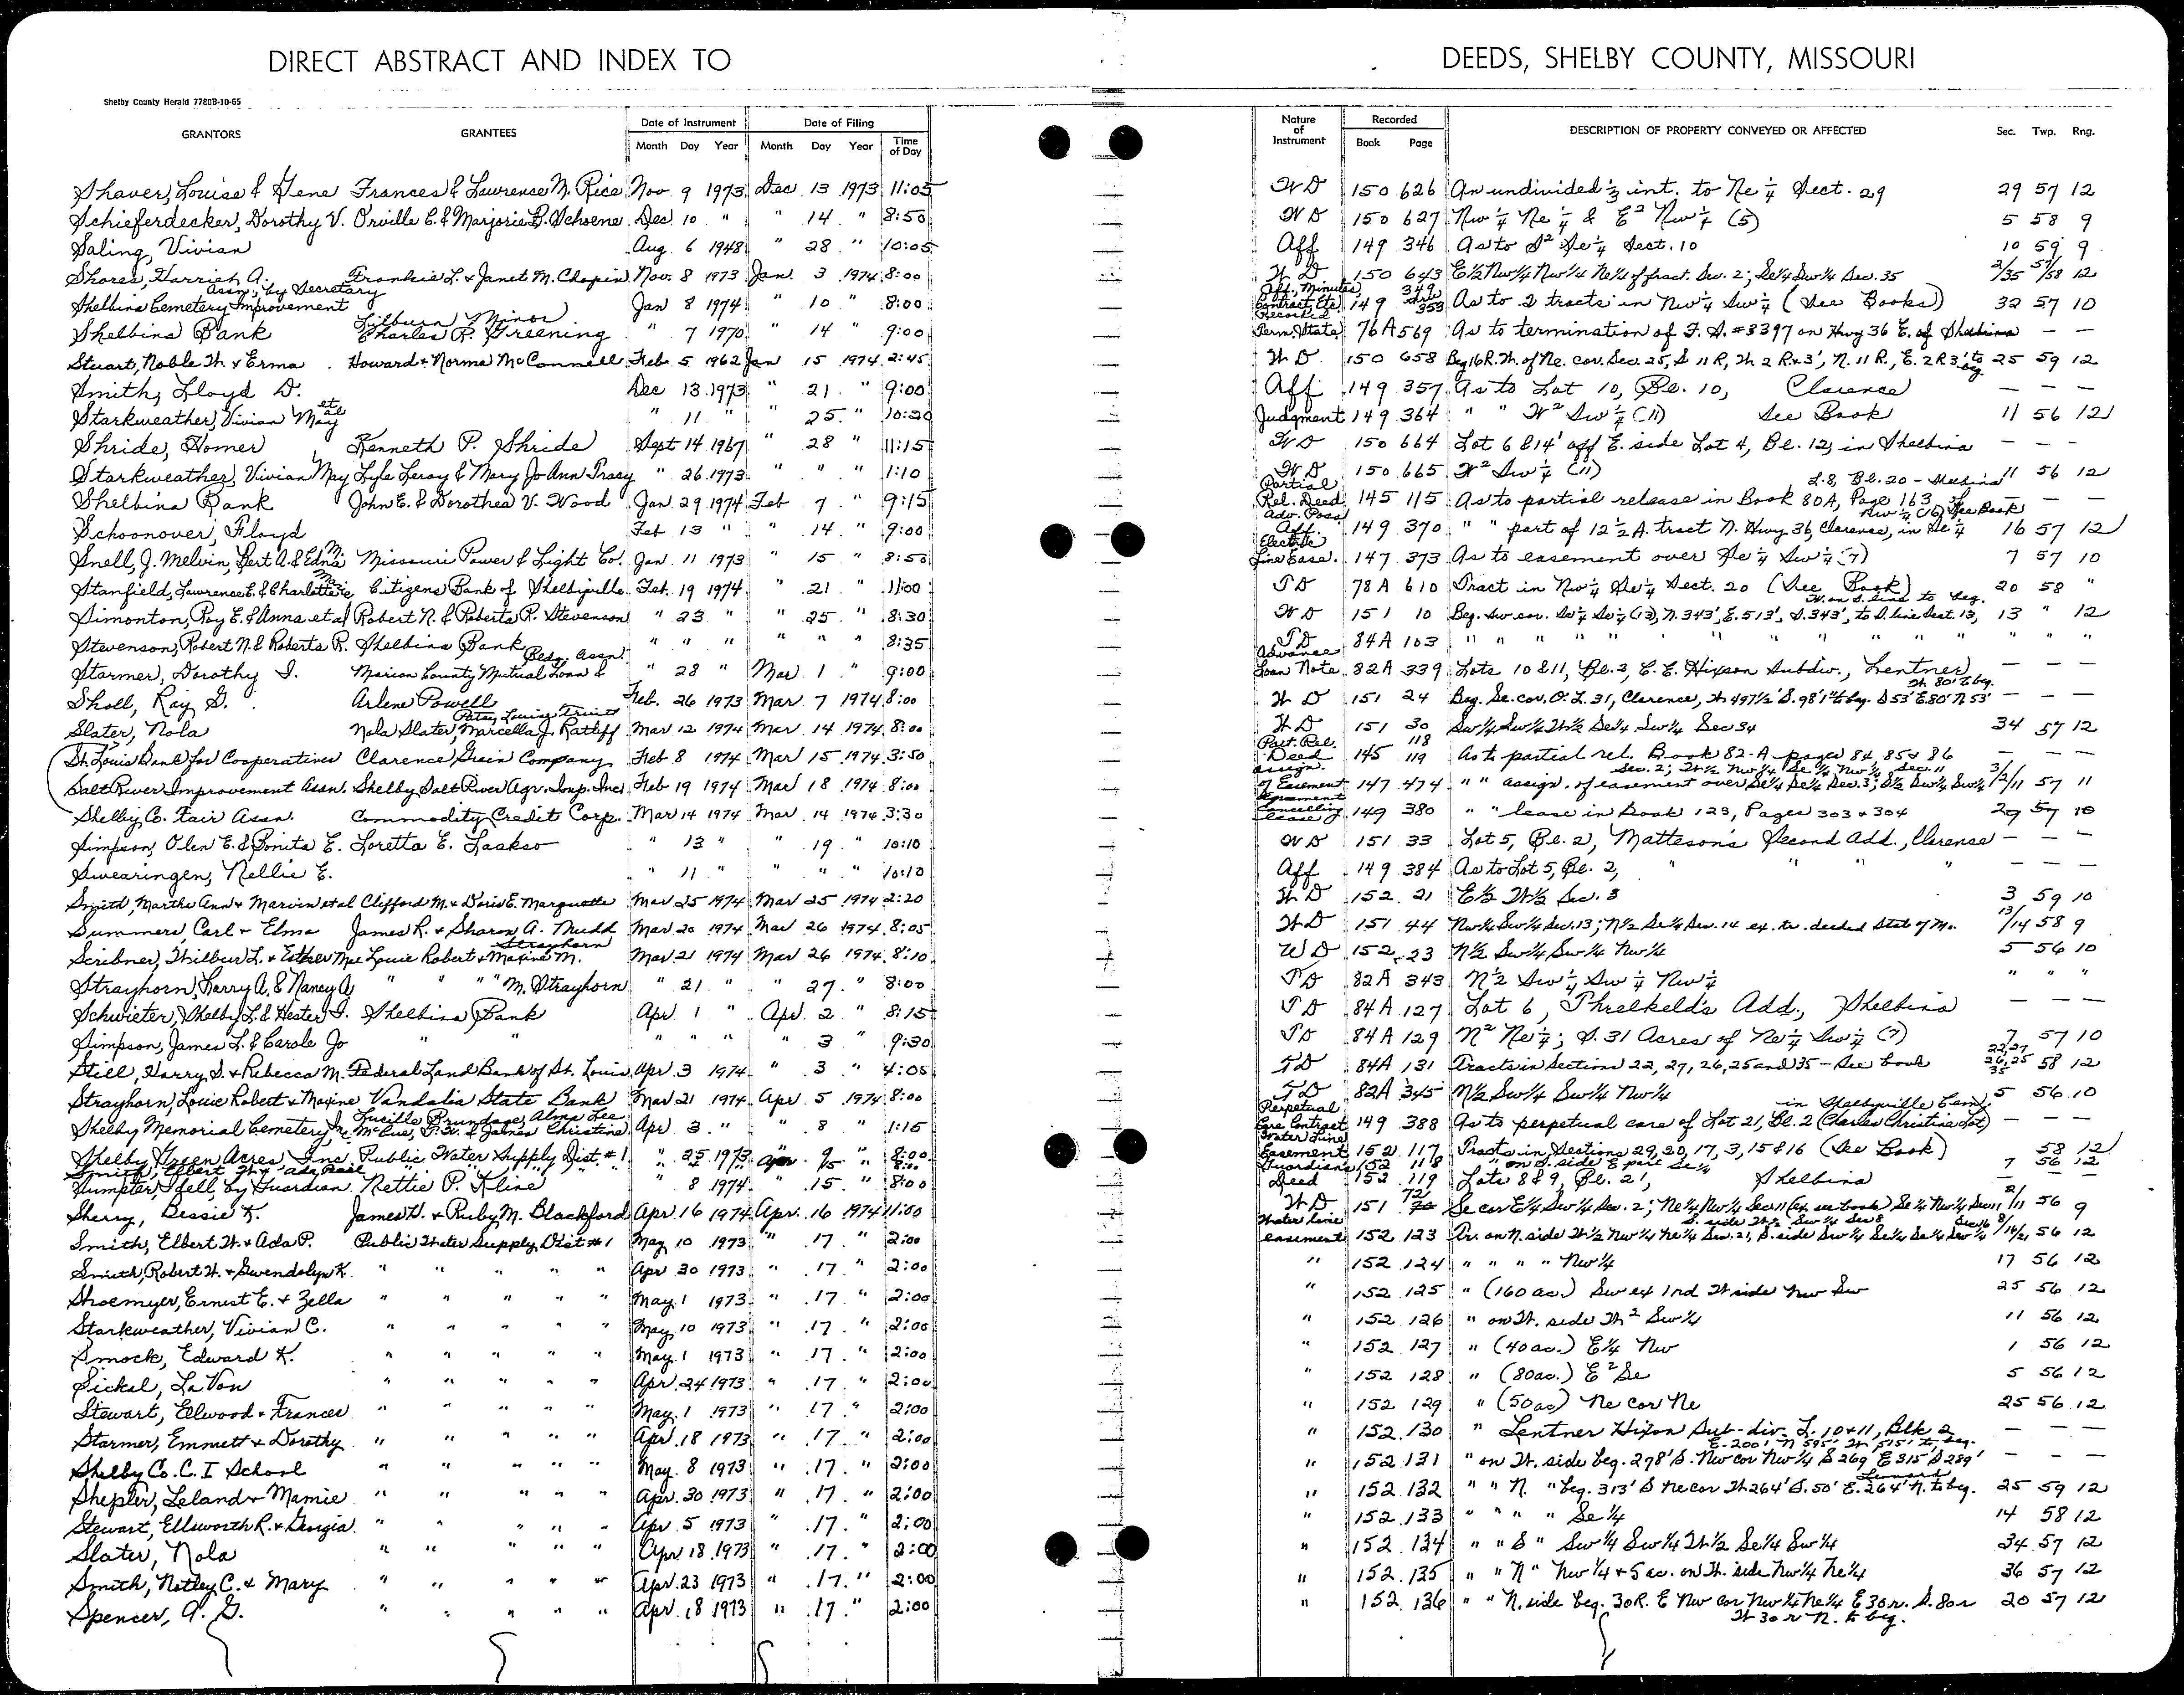 DIRECT ABSTRACT AND INDEX TO DEEDS, SHELBY COUNTY, MISSOURI
Shelby County Herald 7780B-10-65
GRANTORS GRANTEES Date of Instrument Month Day Year Date of Filing Month Day Year Time of Day Nature of Instrument Recorded Book Page DESCRIPTION OF PROPERTY CONVEYED OR AFFECTED Sec. Twp. Rng.
Shaver, Louise & Gene Frances & Lawrence M. Rice Nov. 9 1973 Dec 13 1973 11:05 WD 150 626 An undivided 1/3 int. to Ne 1/4 Sect. 29 29 57 12
Schieferdecker, Dorothy V. Orville E. & Marjorie B. Ochsene Dec 10 " " 14 " 8:50 WD 150 627 Nw 1/4 Ne 1/4 & E2 Nw 1/4 (5) 5 58 9
Saling, Vivian Aug. 6 1948 " 28 " 10:05 Aff 149 346 As to S2 Se 1/4 Sect. 10 10 59 9
Shores, Harriet A. Frankie L. & Janet M. Chapin Nov. 8 1973 Jan. 3 1974 8:00 WD 150 643 E½ Nw¼ Nw¼ Ne¼ of fract. Sec. 2; Se¼ Sw¼ Sec. 35 2/35 57/58 12
Shelbina Cemetery Improvement Assn., by Secretary Jan 8 1974 " 10 " 8:00 Aff., Minutes Contract, Etc Recorded 149 349 353 As to 2 tracts in Nw 1/4 Sw 1/4 (See Books) 32 57 10
Shelbina Bank Lilburn Minor Charles R. Greening " 7 1970 " 14 " 9:00 Term. State. 76A 569 As to termination of F. S. #8397 on Hwy 36 E. of Shelbina — —
Stuart, Noble W. & Erma Howard & Norma McConnell Feb 5 1962 Jan 15 1974 2:45 WD 150 658 Beg 16 R. W. of Ne. cor. Sec. 25, S 11 R, W 2 R & 3', N. 11 R., E. 2 R 3' to beg. 25 59 12
Smith, Lloyd D. Dec 13 1973 " 21 " 9:00 Aff 149 357 As to Lot 10, Bl. 10, Clarence — — —
Starkweather, Vivian May et al " 11 " " 25 " 10:20 Judgment 149 364 " " W2 Sw 1/4 (11) See Book 11 56 12
Shride, Homer Kenneth P. Shride Sept 14 1967 " 28 " 11:15 WD 150 664 Lot 6 & 14' off E. side Lot 4, Bl. 12, in Shelbina — — —
Starkweather, Vivian May Lyle Leroy & Mary Jo Ann Tracy " 26 1973 " " " 1:10 WD 150 665 W2 Sw 1/4 (11) 11 56 12
Shelbina Bank John E. & Dorothea V. Wood Jan 29 1974 Feb 7 " 9:15 Partial Rel. Deed 145 115 As to partial release in Book 80A, Page 163 L. 8, Bl. 20 - Shelbina — —
Schoonover, Floyd Feb 13 " " 14 " 9:00 Adv. Poss. Aff. 149 370 " " part of 12 1/2 A. tract N. Hwy 36, Clarence, in Se 1/4 Nw 1/4 (16) See Book 16 57 12
Snell, J. Melvin, Bert A. & Edna M. Missouri Power & Light Co. Jan. 11 1973 " 15 " 8:50 Electric Line Ease. 147 373 As to easement over Se 1/4 Sw 1/4 (7) 7 57 10
Stanfield, Lawrence E. & Charlotte Citizens Bank of Shelbyville Feb. 19 1974 " 21 " 11:00 TD 78A 610 Tract in Nw 1/4 Se 1/4 Sect. 20 (See Book) 20 58 "
Simonton, Roy E. & Anna et al Robert N. & Roberta R. Stevenson " 23 " " 25 " 8:30 WD 151 10 Beg. Sw cor. Se 1/4 Se 1/4 (13), N. 343', E. 513', S. 343', to S. line Sect. 13, W. on S. line to beg. 13 " 12
Stevenson, Robert N. & Roberta R. Shelbina Bank " " " " " " 8:35 TD 84A 103 " " " " " " " " " " "
Starmer, Dorothy I. Marion County Mutual Loan & Bldg. Assn. " 28 " Mar 1 " 9:00 Advance Loan Note 82A 339 Lots 10 & 11, Bl. 2, C. E. Hixson Subdiv., Lentner — — —
Sholl, Ray G. Arlene Powell Feb. 26 1973 Mar. 7 1974 8:00 WD 151 24 Beg. Se. cor. O. L. 31, Clarence, W 497½' S. 98' 1" to beg. S 53' E 80' N 53' W. 80' to beg. — — —
Slater, Nola Nola Slater, Marcella J. Ratliff Patsy Louise Truitt Mar 12 1974 Mar. 14 1974 8:00 WD 151 30 Sw¼ Sw¼ W½ Se¼ Sw¼ Sec 34 34 57 12
St. Louis Bank for Cooperatives Clarence Grain Company Feb 8 1974 Mar 15 1974 3:50 Part. Rel. Deed 145 118 119 As to partial rel. Book 82-A pages 84, 85 & 86 — — —
Salt River Improvement Assn. Shelby Salt River Agr. Imp. Inc Feb 19 1974 Mar 18 1974 8:00 Assign. of Easement 147 474 " " assign. of easement over Se¼ Se¼ Sec. 3; S½ Sw¼ Sw¼ Sec. 2; W½ Nw¼ Se¼ Nw¼ Sec. 11 3/2/11 57 11
Shelby Co. Fair Assn. Commodity Credit Corp. Mar 14 1974 Mar. 14 1974 3:30 Agreement Cancelling lease 149 380 " " lease in Book 123, Pages 303 & 304 29 57 10
Simpson, Olen E. & Bonita E. Loretta E. Laakso " 13 " " 19 " 10:10 WD 151 33 Lot 5, Bl. 2, Matteson's Second Add., Clarence — — —
Swearingen, Nellie E. " 11 " " " " 10:10 Aff 149 384 As to Lot 5, Bl. 2, " " " — — —
Smith, Martha Ann & Marvin et al Clifford M. & Doris E. Marquette Mar 25 1974 Mar 25 1974 2:20 WD 152 21 E½ W½ Sec. 3 3 59 10
Summers, Carl & Elma James R. & Sharon A. Mudd Mar 20 1974 Mar 26 1974 8:05 WD 151 44 Nw¼ Sw¼ Sec. 13; N½ Se¼ Sec. 14 ex. tr. deeded State of Mo. 13/14 58 9
Scribner, Wilbur L. & Esther Mae Louie Robert & Maxine M. Strayhorn Mar 21 1974 Mar 26 1974 8:10 WD 152 23 N½ Sw¼ Sw¼ Nw¼ 5 56 10
Strayhorn, Larry A. & Nancy A " " " M. Strayhorn " 21 " " 27 " 8:00 TD 82A 343 N½ Sw 1/4 Sw 1/4 Nw 1/4 " " "
Schwieter, Shelby L. & Hester I. Shelbina Bank Apr. 1 " Apr. 2 " 8:15 TD 84A 127 Lot 6, Threlkeld's Add., Shelbina — — —
Simpson, James L. & Carole Jo " " " " " " 3 " 9:30 TD 84A 129 N2 Ne 1/4; S. 31 Acres of Ne 1/4 Sw 1/4 (7) 7 57 10
Still, Harry S. & Rebecca M. Federal Land Bank of St. Louis Apr 3 1974 " 3 " 4:05 TD 84A 131 Tracts in Sections 22, 27, 26, 25 and 35 - See book 22,27 26,25 35 58 12
Strayhorn, Louie Robert & Maxine Vandalia State Bank Mar 21 1974 Apr. 5 1974 8:00 TD 82A 345 N½ Sw¼ Sw¼ Nw¼ 5 56 10
Shelby Memorial Cemetery, Inc Lucille Brundage, Alma Lee McCue, F. W. & James Christine Apr. 3 " " 8 " 1:15 Perpetual Care Contract 149 388 As to perpetual care of Lot 21, Bl. 2 (Charles Christine Lot) in Shelbyville Cem. — —
Shelby Green Acres Inc. Public Water Supply Dist. #1 " 25 1973 " 9 " 8:00 Water Line Easement 152 117 Tracts in Sections 29, 20, 17, 3, 15 & 16 (See Book) 58 12
Smith, Elbert W. & Ada Pearl " " " " Apr 8:00 152 118 " on S. side E part Se¼ 7 56 12
Sumpter, Ifell, by Guardian Nettie P. Kline " 8 1974 " 15 " 8:00 Guardians Deed 152 119 Lots 8 & 9, Bl. 21, Shelbina
Sherry, Bessie K. James W. & Ruby M. Blackford Apr. 16 1974 Apr. 16 1974 11:00 WD 151 72 Se cor E¼ Sw¼ Sec. 2; Ne¼ Nw¼ Sec 11 (ex see book) Se¼ Nw¼ Sec 11 2/11 56 9
Smith, Elbert W. & Ada P. Public Water Supply Dist #1 May 10 1973 " 17 " 2:00 Water line easement 152 123 Tr. on N. side W½ Nw¼ Ne¼ Sec. 21, S. side Sw¼ Se¼ 56 12
Smith, Robert W. & Gwendolyn K. " " " " " Apr 30 1973 " 17 " 2:00 " 152 124 " " " " Nw¼ 17 56 12
Shoemyer, Ernest E. & Zella " " " " " May 1 1973 " 17 " 2:00 " 152 125 " (160 ac.) Sw ex 1 rd W side Nw Sw 25 56 12
Starkweather, Vivian C. " " " " " May 10 1973 " 17 " 2:00 " 152 126 " on W. side W2 Sw¼ 11 56 12
Smock, Edward K. " " " " " May 1 1973 " 17 " 2:00 " 152 127 " (40 ac.) E¼ Nw 1 56 12
Sickal, LaVon " " " " " Apr. 24 1973 " 17 " 2:00 " 152 128 " (80 ac.) E2 Se 5 56 12
Stewart, Ellwood & Frances " " " " " May 1 1973 " 17 " 2:00 " 152 129 " (50 ac) Ne cor Ne 25 56 12
Starmer, Emmett & Dorothy " " " " " Apr. 18 1973 " 17 " 2:00 " 152 130 " Lentner Hixon Sub-div. L. 10 & 11, Blk 2 — — —
Shelby Co. C. I School " " " " " May 8 1973 " 17 " 2:00 " 152 131 " on W. side beg. 278' S. Nw cor Nw¼ S 269' E 315' S 289' E. 200' N 595' W. 515' to beg. — — —
Shepler, Leland & Mamie " " " " " Apr. 30 1973 " 17 " 2:00 " 152 132 " " N. " beg. 313' S Ne cor W 264' S. 50' E. 264' N. to beg. 25 59 12
Stewart, Ellsworth R. & Georgia " " " " " Apr. 5 1973 " 17 " 2:00 " 152 133 " " " " Se¼ 14 58 12
Slater, Nola " " " " " Apr 18 1973 " 17 " 2:00 " 152 134 " " S " Sw¼ Sw¼ W½ Se¼ Sw¼ 34 57 12
Smith, Notley C. & Mary " " " " " Apr. 23 1973 " 17 " 2:00 " 152 135 " " N " Nw¼ & 5 ac. on W. side Nw¼ Ne¼ 36 57 12
Spencer, A. G. " " " " " Apr. 18 1973 " 17 " 2:00 " 152 136 " " N. side beg. 30R. E Nw cor Nw¼ Ne¼ E 30 r. S. 80 r W 30 r N. to beg. 20 57 12